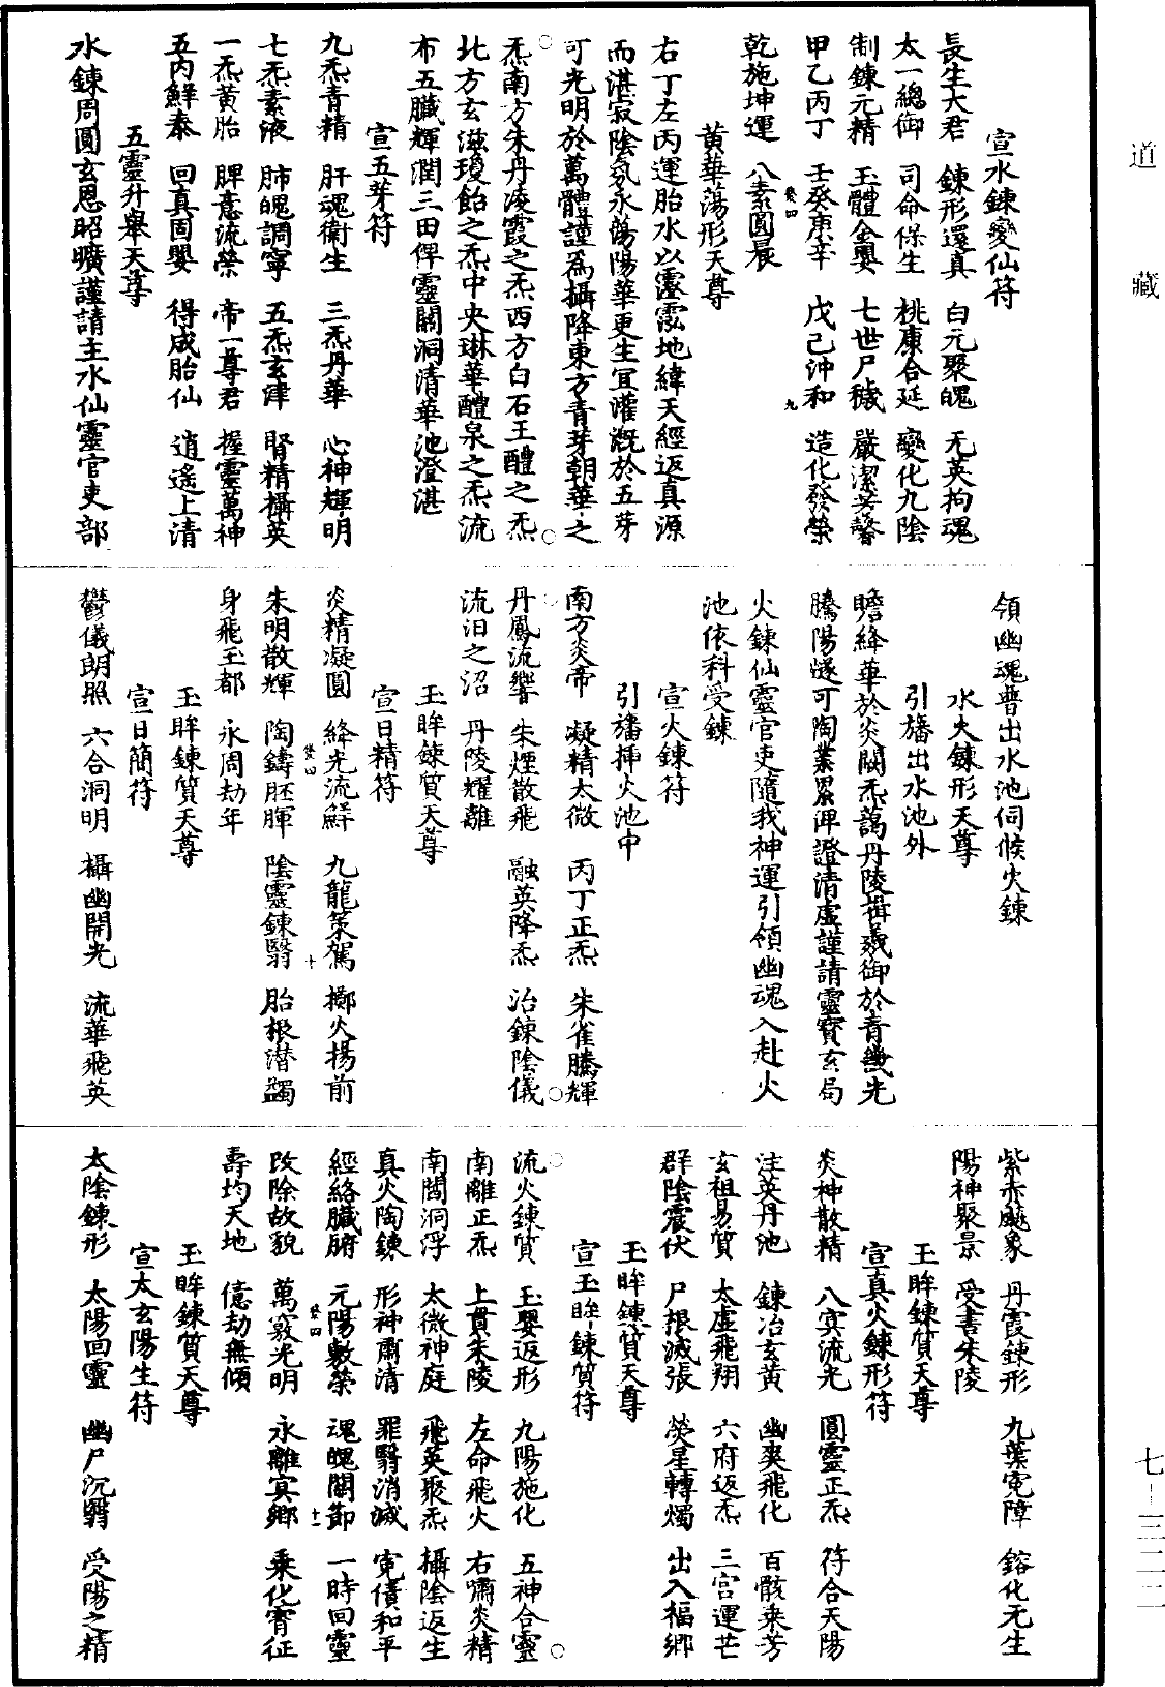 道藏
七—三二二
宣水鍊變仙符
長生大君　鍊形還真　白元聚魄　无英拘魂
太一總御　司命保生　桃康合延　變化九陰
制鍊元精　玉體金輿　七世尸穢　嚴潔芳馨
甲乙丙丁　壬癸庚辛　戊己沖和　造化發榮
癸四　九
乾施坤運　八素圓晨
黃華蕩形天尊
右丁左丙運胎水以瀴泓地緯天經返真源
而湛寂陰氛永蕩陽華更生宜灌溉於五芽
可光明於萬體謹為攝降東方青芽朝華之
炁南方朱丹凌霞之炁西方白石玉醴之炁
北方玄滋瓊飴之炁中央琳華醴泉之炁流
布五臟輝潤三田俾靈關洞清華池澄湛
宣五芽符
九炁青精　肝魂衛生　三炁丹華　心神輝明
七炁素液　肺魄調寧　五炁玄津　腎精攝英
一炁黃胎　脾意流榮　帝一尊君　握靈萬神
五內鮮泰　回真固嬰　得成胎仙　逍遙上清
五靈升舉天尊
水鍊周圓玄恩昭曠謹請主水仙靈官吏部
領幽魂普出水池伺候火鍊
水火鍊形天尊
引旛出水池外
瞻絳華於炎闕炁藹丹陵揖羲御於青畿光
騰陽燧可陶業累俾證清虛謹請靈寶玄局
火鍊仙靈官吏隨我神運引領幽魂入赴火
池依科受鍊
宣火鍊符
引旛揷火池中
南方炎帝　凝精太微　丙丁正炁　朱雀騰輝
丹鳳流響　朱煙散飛　融英降炁　冶鍊陰儀
流汨之沼　丹陵耀離
玉眸鍊質天尊
宣日精符
炎精凝圓　絳光流鮮　九龍策駕　擲火揚前
癸四　十
朱明散輝　陶鑄胚腪　陰靈鍊翳　胎根潛蠲
身飛玉都　永周劫年
玉眸鍊質天尊
宣日簡符
鬱儀朗照　六合洞明　攝幽開光　流華飛英
紫赤飈象　丹霞鍊形　九葉寃障　鎔化无生
陽神聚景　受書朱陵
玉眸鍊質天尊
宣真火鍊形符
炎神散精　八冥流光　圓靈正炁　符合天陽
注英丹池　鍊冶玄黃　幽爽飛化　百骸乘芳
玄祖易質　太虛飛翔　六府返炁　三宮運芒
群陰震伏　尸根滅張　熒星轉燭　出入福鄉
玉眸鍊質天尊
宣玉眸鍊質符
流火鍊質　玉嬰返形　九陽施化　五神合靈
南離正炁　上貫朱陵　左命飛火　右嘯炎精
南閶洞浮　太微神庭　飛英聚炁　攝陰返生
真火陶鍊　形神肅清　罪翳消滅　寃債和平
經絡臟腑　元陽敷榮　魂魄關節　一時回靈
癸四　十一
改除故貌　萬竅光明　永離冥鄉　乘化霄征
壽均天地　億劫無傾
玉眸鍊質天尊
宣太玄陽生符
太陰鍊形　太陽回靈　幽尸沉翳　受陽之精